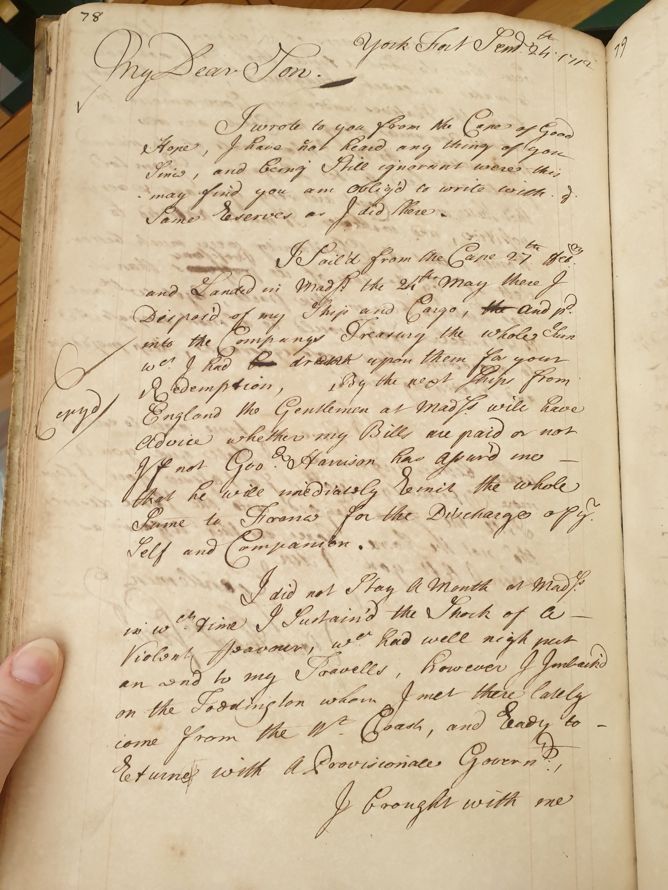 78
York Fort 24th 1712
My Dear Son.
I wrote to you from the Cape of Good
Hope, I have not heard any thing of you
Since, and being Still ignorant were this
may find you am oblig'd to write with ye
Same Reserves as I did there.
I Sail'd from the Cape 27th
and Landed in Madss the 24th May there I
Dispos'd of my Ship and Cargo, and pd.
into the Companys Treasury the whole Sum
wch I had drawn upon them for your
Redemption, By the next Ships from
England the Gentlemen at Madss will have
Advice whether my Bills are paid or not
If not Harrison has assur'd me
that he will imediately Remit the whole
Sume to France for the Discharge of yr.
Self and Companion.
I did not Stay a Month at Madss
in wch time I Sustain'd the Shock of a
Violent Feavour, wch had well nigh put
an end to my Travells, however I Imbark'd
on the Toddington whom I met there lately
come from the Wt Coast, and Ready to
Returne with a Provisionale Governr,
I brought with me
79